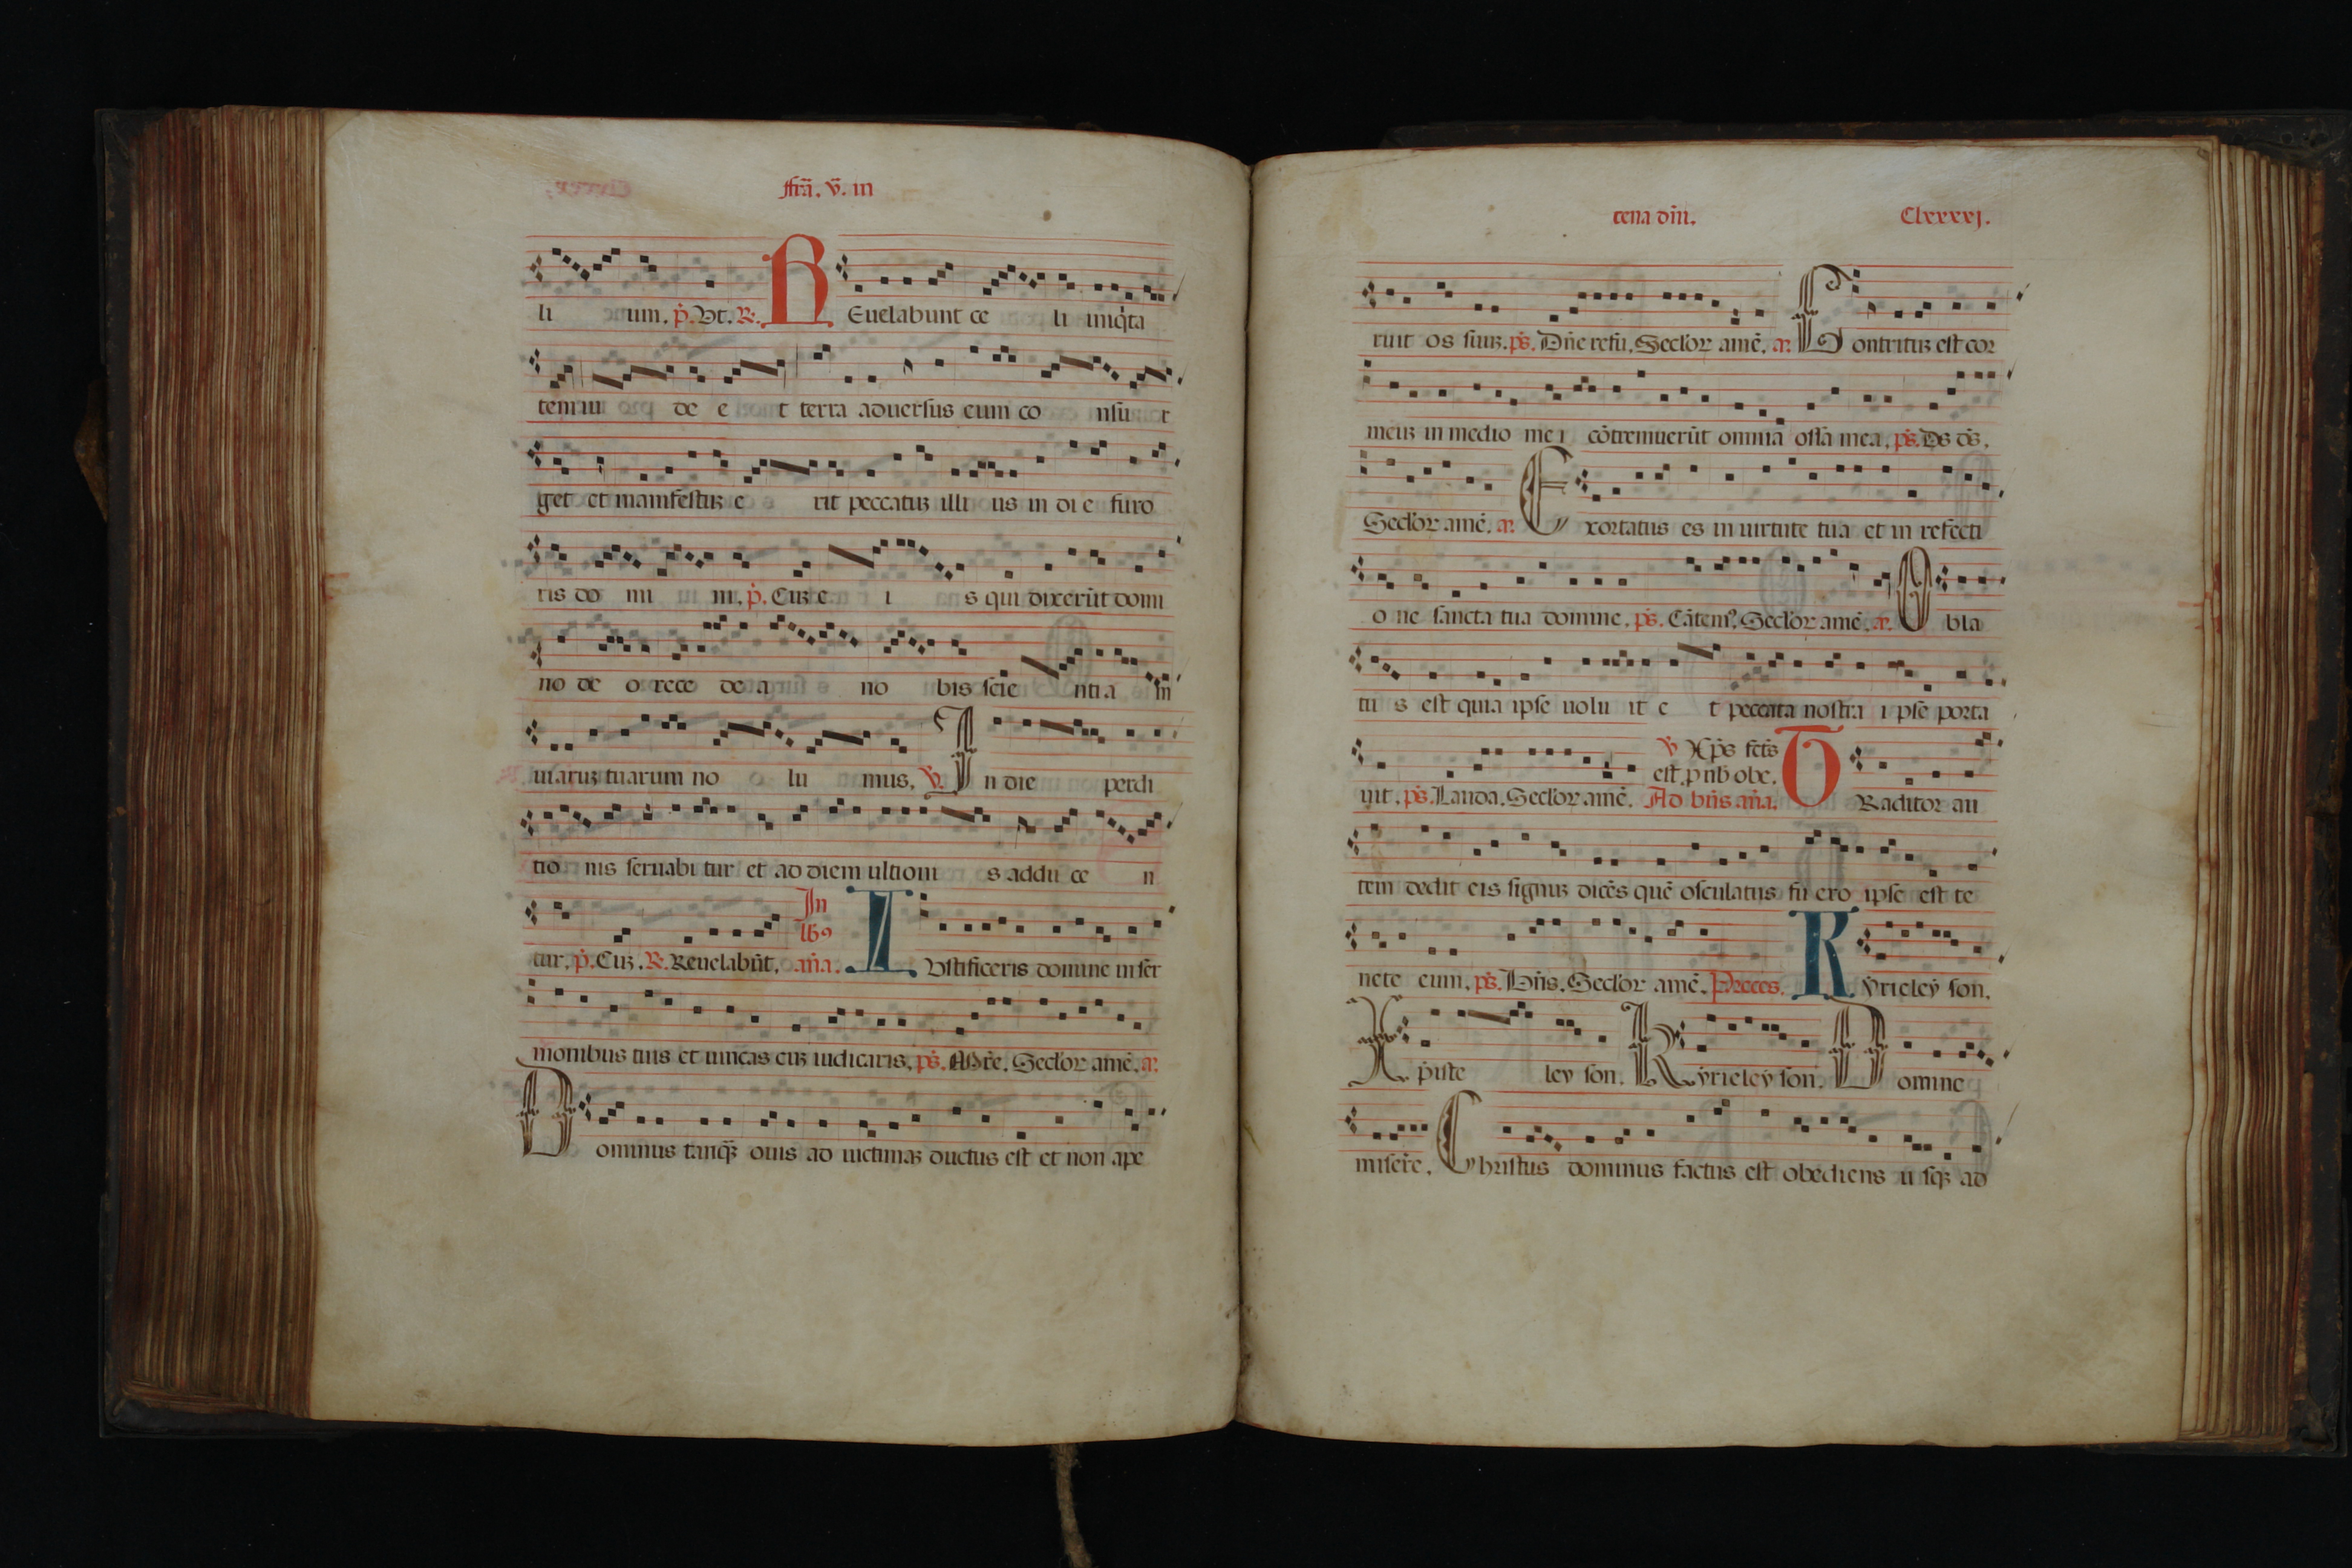 ffr̃a. v̄. in
li um. p̄. Vt. R̷.
R Euelabunt ce li iniq̇ta
tem iu de e t terra aduersus eum co nsu r
get et manifestuꝫ e rit peccatuꝫ illi us in di e furo
ris do mi ni. p̄. Cuꝫ e i s qui dixerūt domi
no deo rece de a no bis scie ntia m
uiaruꝫ tuarum no lu mus. V̄. I n die perdi
tio nis seruabi tur et ad diem ultioni s addu ce n
tur. p̄. Cuꝫ. R̷. Reuelabūt. In lb᷒ añа. I Vstificeris domine in ser
monibus tuis et uincas cuꝫ iudicaris. ps̄. M̄re. Seclor amē. a᷒.
D ominus tanq̄ꝫ ouis ad uictimaꝫ ductus est et non ape
cena dñi. Clxxxxj.
ruit os suuꝫ. ps̄. Dñe refu. Seclor amē. a᷒. C ontrituꝫ est cor
meuꝫ in medio me i cōtremuerūt omnia ossa mea. ps̄. Ds ds̄.
Seclor amē. a᷒. E xortatus es in uirtute tua et in refecti
o ne sancta tua domine. ps̄. Cātem᷒. Seclor amē. a᷒. O bla
tu s est quia ipse uolu it e t peccata nostra i pse porta
uit. ps̄. Lauda. Seclor amē. V̄ Xp̄s fcts̄ est. p nb̄ obe. Ad bñs añа. T Raditor au
tem dedit eis signuꝫ dicēs quē osculatus fu ero ipse est te
nete eum. ps̄. Bñs. Seclor amē. Preces. K ẏrieleẏ son.
X p̄iste leẏ son. K ẏrieleẏ son. D omine
misēre. C hristus dominus factus est obediens u sqꝫ ad